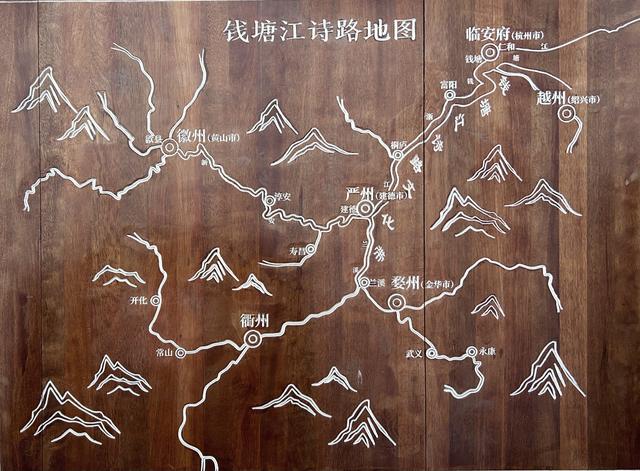 钱塘江诗路地图
临安府(杭州市)
仁和
钱塘
江
塘
钱
富阳
越州(绍兴市)
浙
江
歙县
徽州(黄山市)
新
桐庐
江
严州(建德市)
建德
淳安
安
寿昌
兰
溪
兰溪
婺州(金华市)
开化
衢州
常山
武义
永康